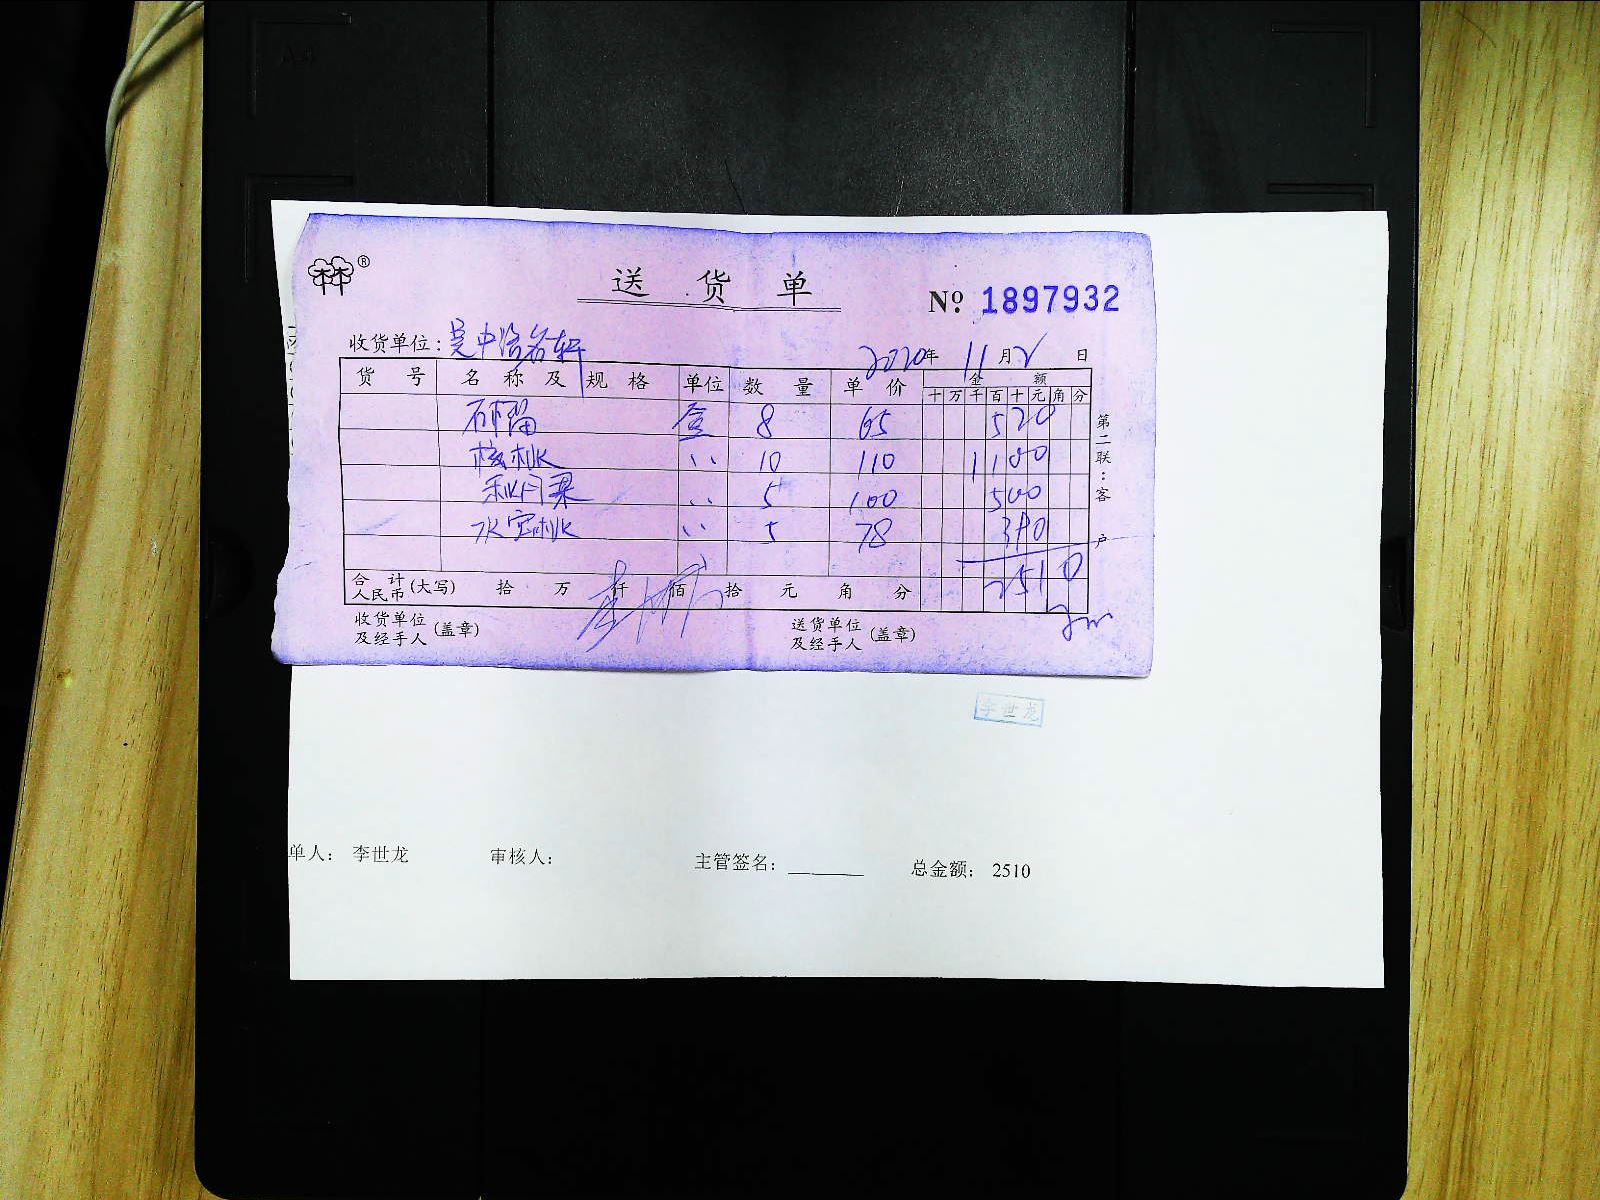 林林®
送货单
№ 1897932
收货单位: 吴中洽谷轩 2020年 11月2日
货号 名称及规格 单位 数量 单价 金额
十万千百十元角分
石榴 盒 8 65 520
核桃 〃 10 110 1100
〃 5 100 500
水蜜桃 〃 5 78 390
2510
合计人民币(大写) 拾 万 仟 佰 拾 元 角 分
收货单位及经手人(盖章) 送货单位及经手人(盖章)
第二联:客户
李世龙
单人: 李世龙 审核人: 主管签名: 总金额: 2510